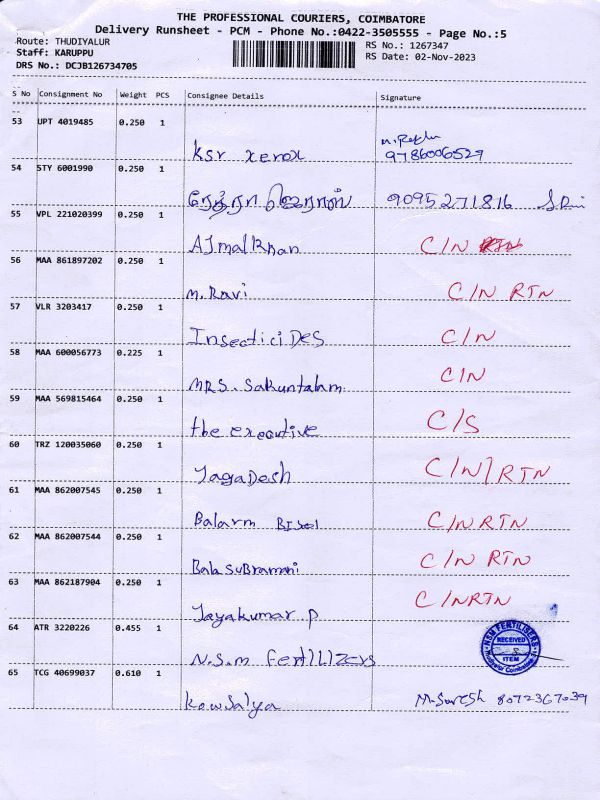 THE PROFESSIONAL COURIERS, COIMBATORE
Delivery Runsheet - PCM - Phone No.:0422-3505555 - Page No.:5
Route: THUDIYALUR
Staff: KARUPPU
DRS No.: DCJB126734705
RS No.: 1267347
RS Date: 02-Nov-2023
S No Consignment No Weight PCS Consignee Details Signature
53 UPT 4019485 0.250 1
ksr xerox 9786006529
54 STY 6001990 0.250 1
நேத்ரா ஜெராஸ் 9095271816
55 VPL 221020399 0.250 1
AJmalkhan C/N
56 MAA 861897202 0.250 1
M. Ravi C/N RTN
57 VLR 3203417 0.250 1
InsecticiDes C/N
58 MAA 600056773 0.225 1
MRS. Sakuntalam C/N
59 MAA 569815464 0.250 1
the executive C/S
60 TRZ 120035060 0.250 1
JagaDesh C/N/RTN
61 MAA 862007545 0.250 1
Balarm C/N RTN
62 MAA 862007544 0.250 1
BalaSuBramani C/N RTN
63 MAA 862187904 0.250 1
Jayakumar.P C/N RTN
64 ATR 3220226 0.455 1
N.S.M Fertilizers
NSM FERTILISERS
RECEIVED
ITEM
65 TCG 40699037 0.610 1
Kowsalya M. Suresh 8072367039